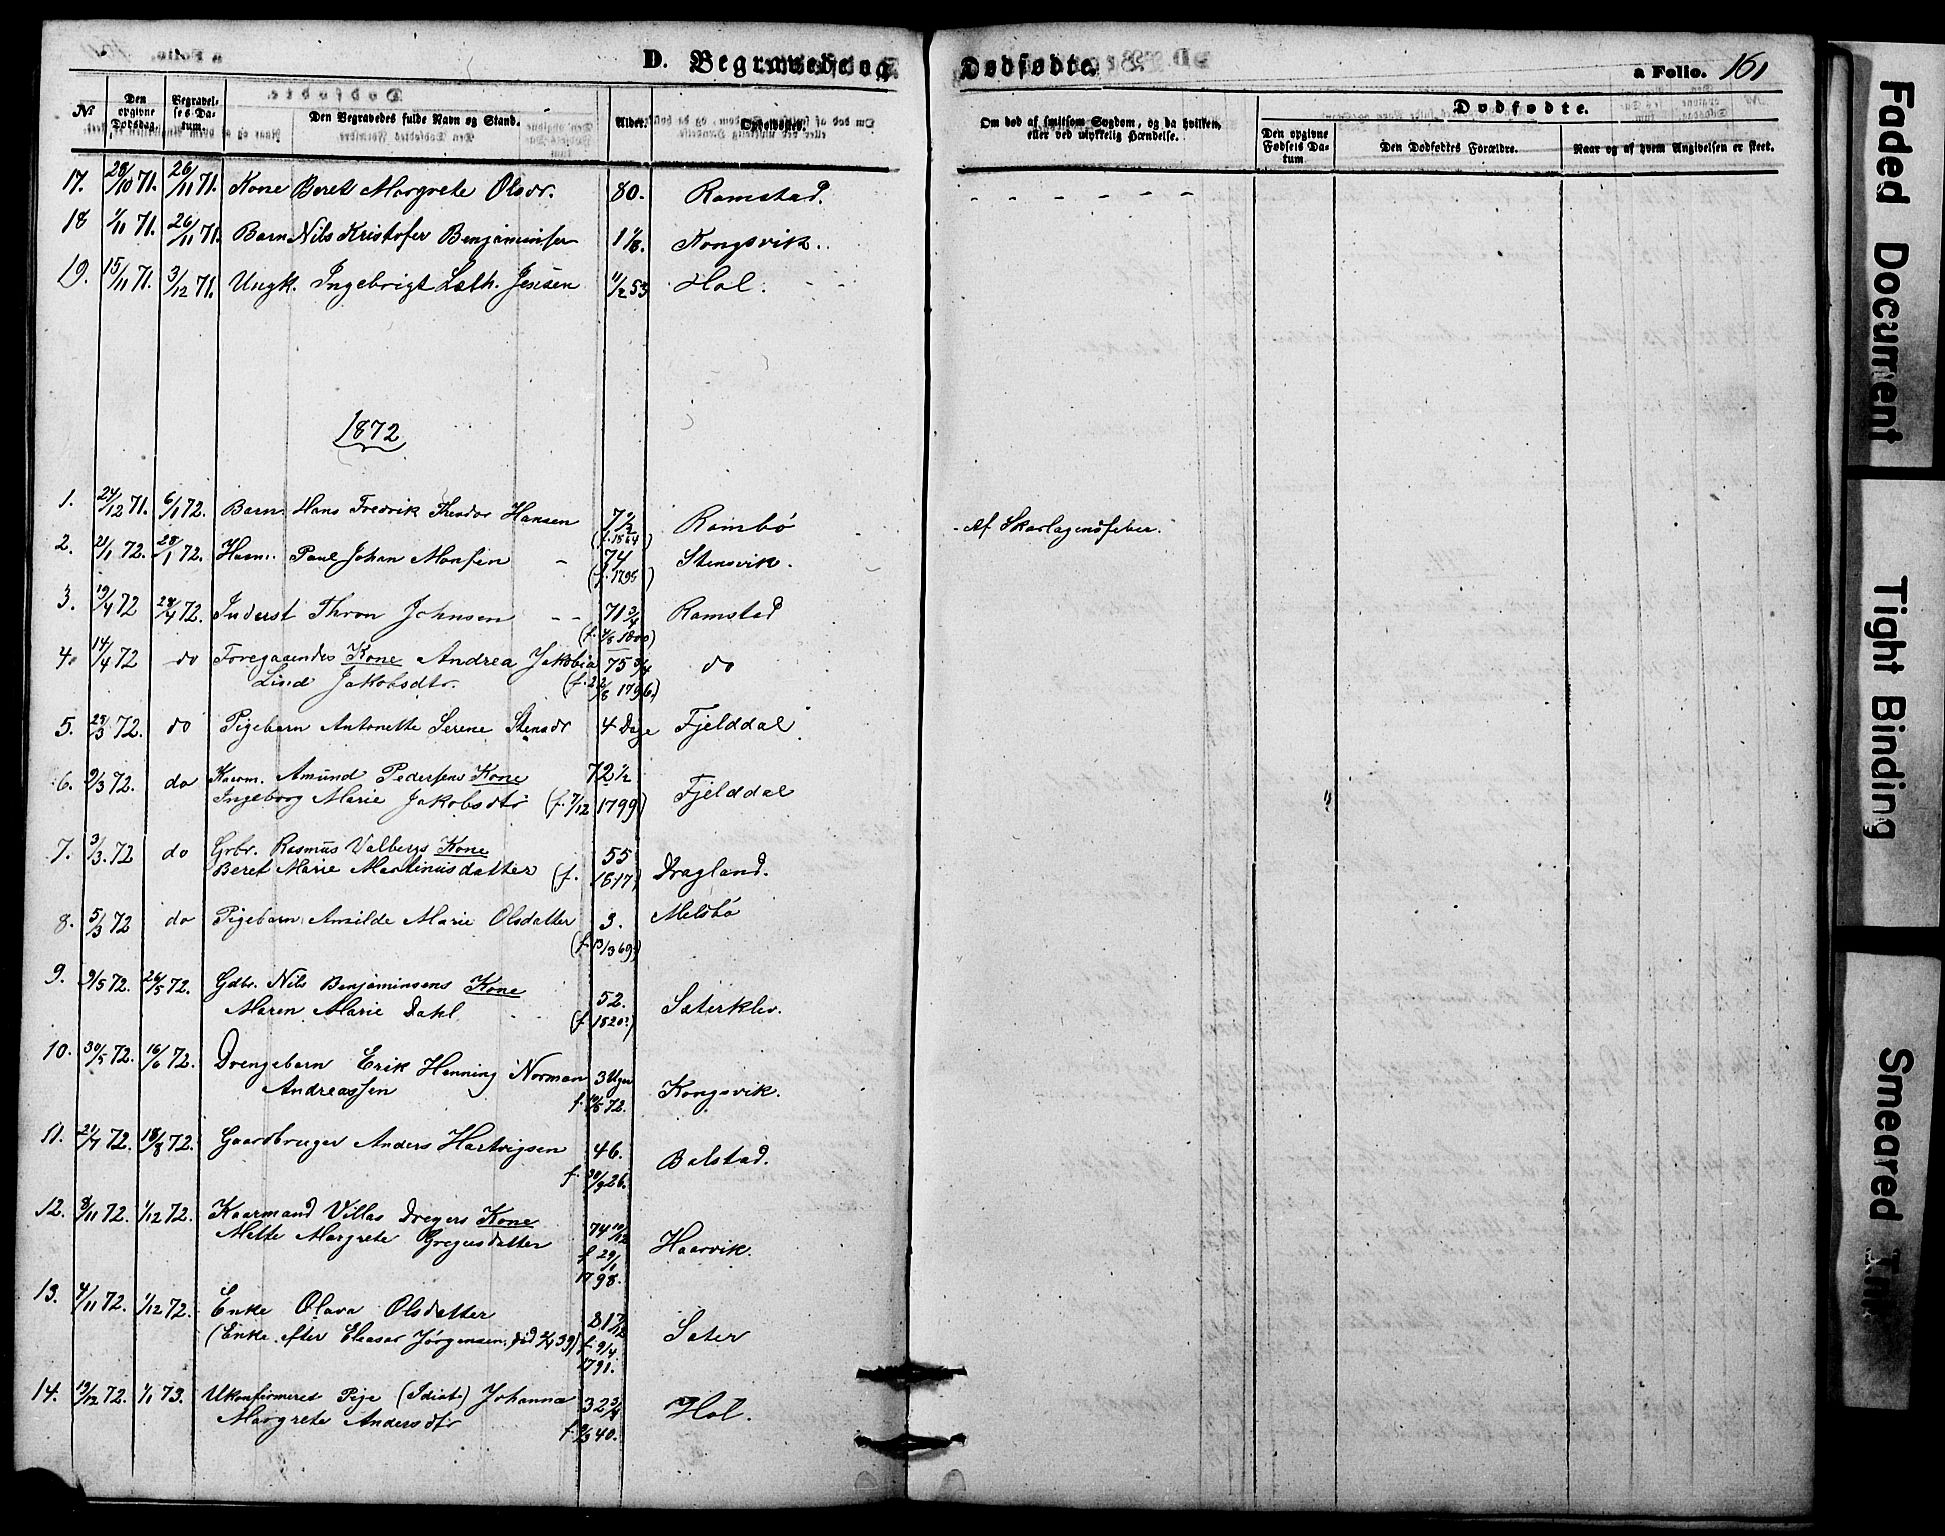 D. Begravede og Dødfødte.
a Folio. 161
№
Den opgivne Dødsdag.
Begravelses Datum.
Den Begravedes fulde Navn og Stand.
Alder.
Opholdssted.
Om død af smitsom Sygdom, og da hvilken, eller ved ulykkelig Hændelse.
Dødfødte.
Den opgivne Fødsels Datum
Den Dødfødtes Forældre.
Naar og af hvem Angivelsen er skeet.
17. 28/10 71. 26/11 71. Kone Beret Margrete Olsdr. 80. Ramstad. - - - - -
18 1/11 71. 26/11 71. Barn Nils Kristofer Benjaminsen 1 1/8. Kongsvik.
19. 15/11 71. 3/12 71. Ungk. Ingebrigt Læth. Jensen 11/2 53 Hol.
1872
1. 24/12 71. 6/1 72. Barn Hans Fredrik Theodor Hansen 7 1/2 Rambö - Af Skarlagensfeber.
(f. 1864)
2. 21/1 72. 28/1 72. Husm. Paul Johan Monsen - 74 Stensvik.
(f. 1798)
3. 19/4 72 28/4 72. Inderst Thron Johnsen - - 71 3/4 Ramstad
(f. 4/8 1800)
4. 14/4 72 do Foregaaendes Kone Andrea Jakobia 75 3/4 do
Lind Jakobsdtr. (f. 22/8 1796.)
5. 28/3 72. do Pigebarn Antonette Serene Stensdr 4 Dage Fjelddal
6. 9/3 72. do Kaarm. Amund Pedersens Kone 72 1/2 Fjelddal
Ingeborg Marie Jakobsdtr (f. 7/12 1799)
7. 3/3. 72 do Grbr. Rasmus Valbergs Kone 55 Dragland.
Beret Marie Martinusdatter (f. 1817)
8. 5/3 72 do Pigebarn Amilde Marie Olsdatter 3. Melsbö
(f. 13/3 69.)
9. 9/5 72. 26/5 72. Gdbr. Nils Benjaminsens Kone 52. Sæterklev.
Maren Marie Dahl (f. 1820?)
10. 30/5 72. 16/6 72. Drengebarn Erik Henning Norman 3 Uger Kongsvik.
Andreassen f. 10/5 72.
11. 21/7 72. 18/8 72. Gaardbruger Anders Hartvigsen 46. Balstad.
f. 30/9 26.
12. 8/11 72. 1/12 72. Kaarmand Villas Dreyers Kone 74 10/12 Haarvik.
Mette Margrete Gregusdatter f 29/1
1798.
13. 4/11 72. 1/12 72. Enke Olava Olsdatter 81 7/12 Sæter
(Enke efter Eleasar Jörgensen, död 2/4 39) f. 9/4
1791.
14. 19/12 72. 1/1 73. Ukonfirmeret Pige (Idiot) Johanna 32 3/4 Hol.
Margrete Andersdtr f. 9/3 40.
Faded Document
Tight Binding
Smeared Ink